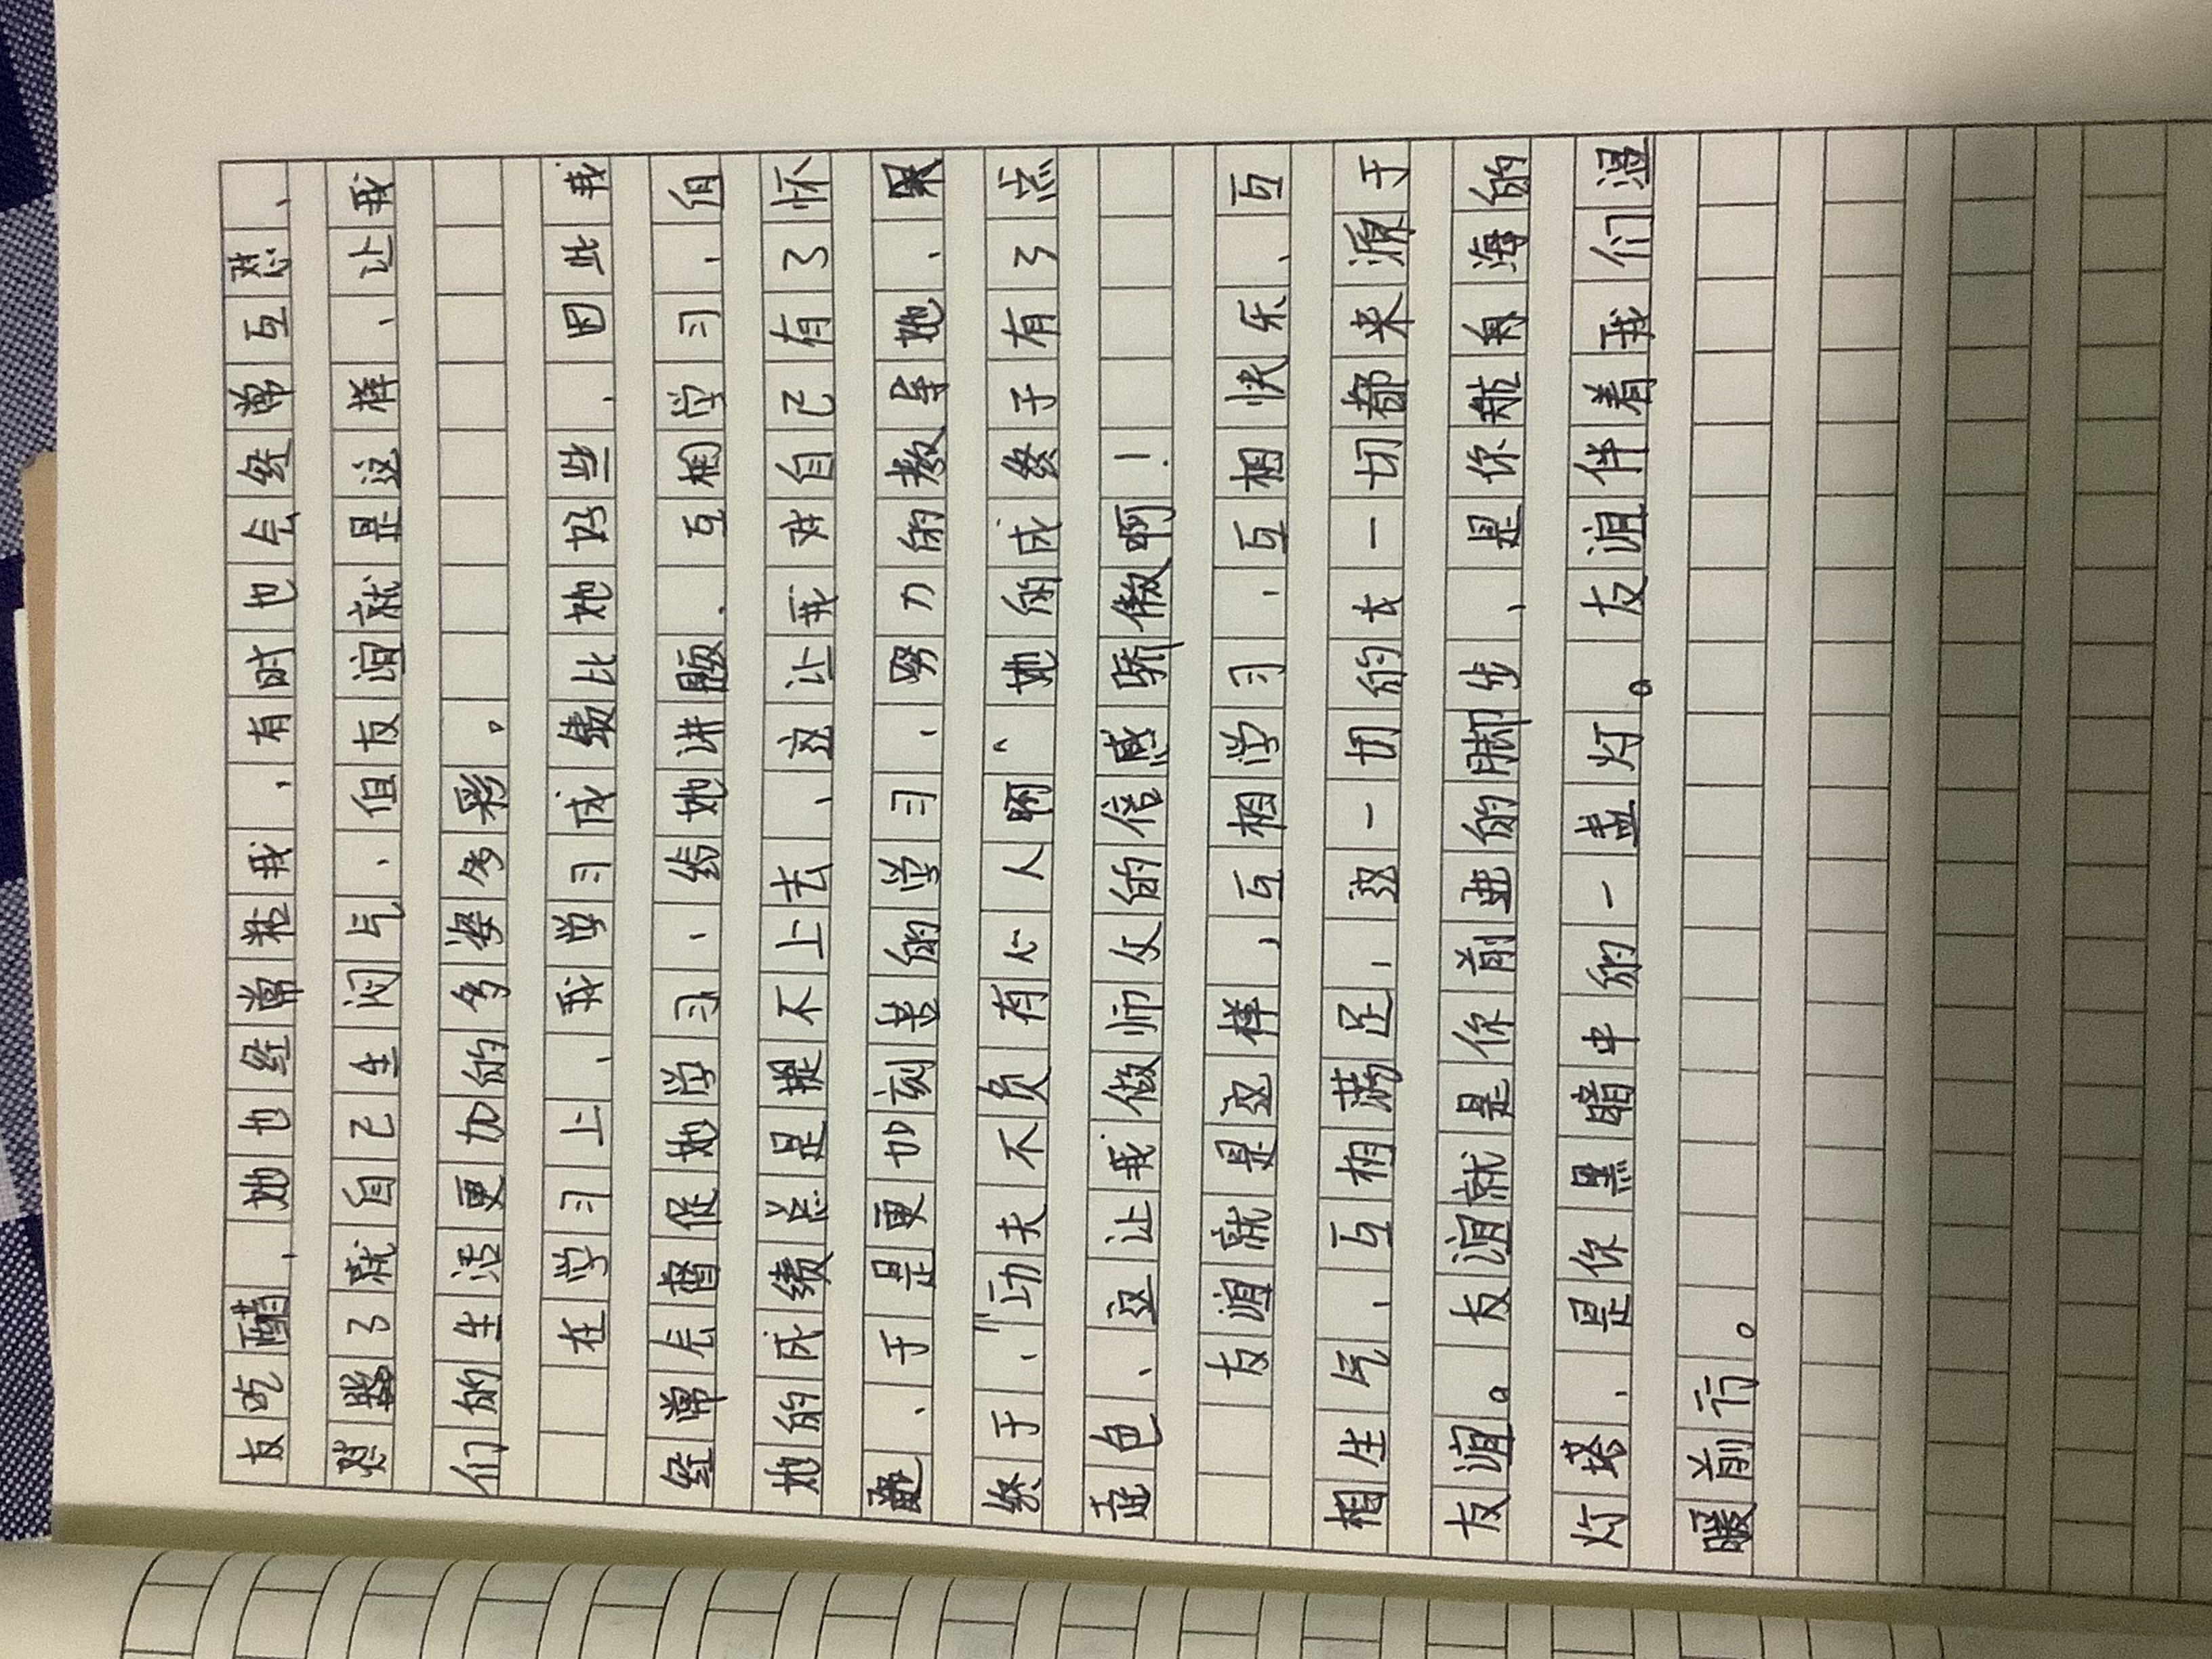 友吃醋，她也经常粘我，有时也会经常互怼，
怼器了就自己生闷气，但友谊就是这样，让我
们的生活更加的多姿多彩。
在学习上，我学习成绩比她好些，因此我
经常去督促她学习，给她讲题，互相学习，但
她的成绩总是提不上去，这让我对自己有了怀
，于是更加刻苦的学习，努力的教导她，果
终于，“功夫不负有心人啊”她的成终于有了点
起色，这让我做师父的倍感骄傲啊！
友谊就是这样，互相学习，互相快乐，互
相生气，互相满足，这一切的去一切都来源于
友谊。友谊就是你前进的脚步，是你航海的
灯塔，是你黑暗中的一盏灯。友谊伴着我们温
暖前行。